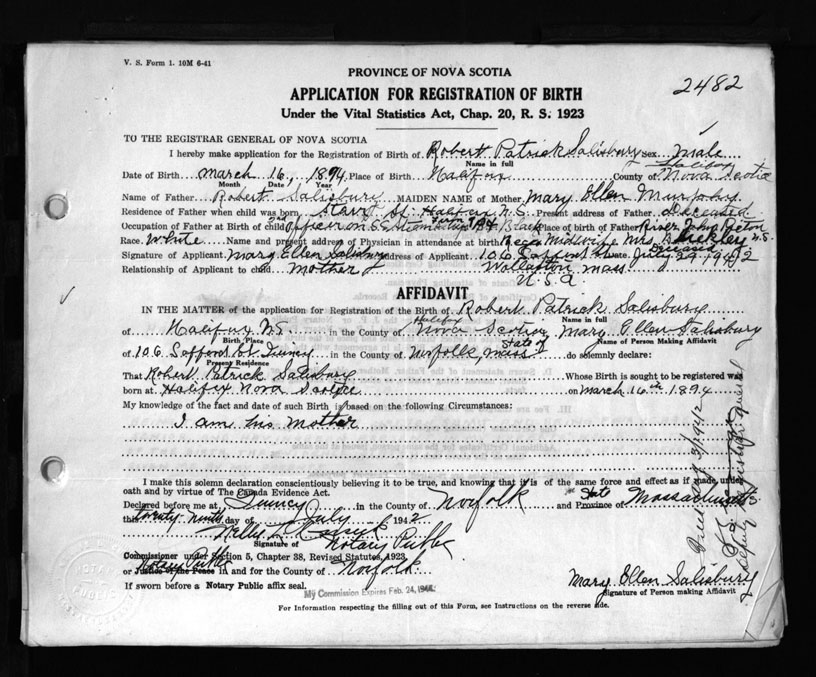 V. S. Form 1. 10M 6-41
2482
PROVINCE OF NOVA SCOTIA
APPLICATION FOR REGISTRATION OF BIRTH
Under the Vital Statistics Act, Chap. 20, R. S. 1923
TO THE REGISTRAR GENERAL OF NOVA SCOTIA
I hereby make application for the Registration of Birth of Robert Patrick Salisbury Sex Male
Name in full
Halifax
Date of Birth March 16, 1894 Place of Birth Halifax County of Nova Scotia
Month Date, Year
Name of Father Robert Salisbury MAIDEN NAME of Mother Mary Ellen Murphy
Residence of Father when child was born Halifax N.S. Present address of Father Deceased
Occupation of Father at Birth of child 2nd Officer on S.S. Place of Birth of Father River John
Race White Name and present address of Physician in attendance at birth Midwife Mrs N.S.
Deceased
Signature of Applicant Mary Ellen Salisbury Address of Applicant 106 Safford St Date July 29 1942
Relationship of Applicant to child Mother Wollaston Mass.
U.S.A.
AFFIDAVIT
IN THE MATTER of the application for Registration of the Birth of Robert Patrick Salisbury
Name in full
Halifax
of Halifax N.S. in the County of Nova Scotia Mary Ellen Salisbury
Birth Place Name of Person Making Affidavit
State of
of 106 Safford St Quincy in the County of Norfolk Mass do solemnly declare:
Present Residence
That Robert Patrick Salisbury Whose Birth is sought to be registered was
born at Halifax Nova Scotia on March 16th 1894
My knowledge of the fact and date of such Birth is based on the following Circumstances:
I am his Mother
I make this solemn declaration conscientiously believing it to be true, and knowing that it is of the same force and effect as if made under
oath and by virtue of The Canada Evidence Act.
Declared before me at Quincy in the County of Norfolk and State Province of Massachusetts
this twenty ninth day of July 1942
Notary Public
Signature of
Commissioner under Section 5, Chapter 38, Revised Statutes, 1923
Notary Public
or Justice of the Peace in and for the County of Norfolk
If sworn before a Notary Public affix seal.
My Commission Expires Feb. 24,
Mary Ellen Salisbury
Signature of Person making Affidavit
For Information respecting the filling out of this Form, see Instructions on the reverse side.